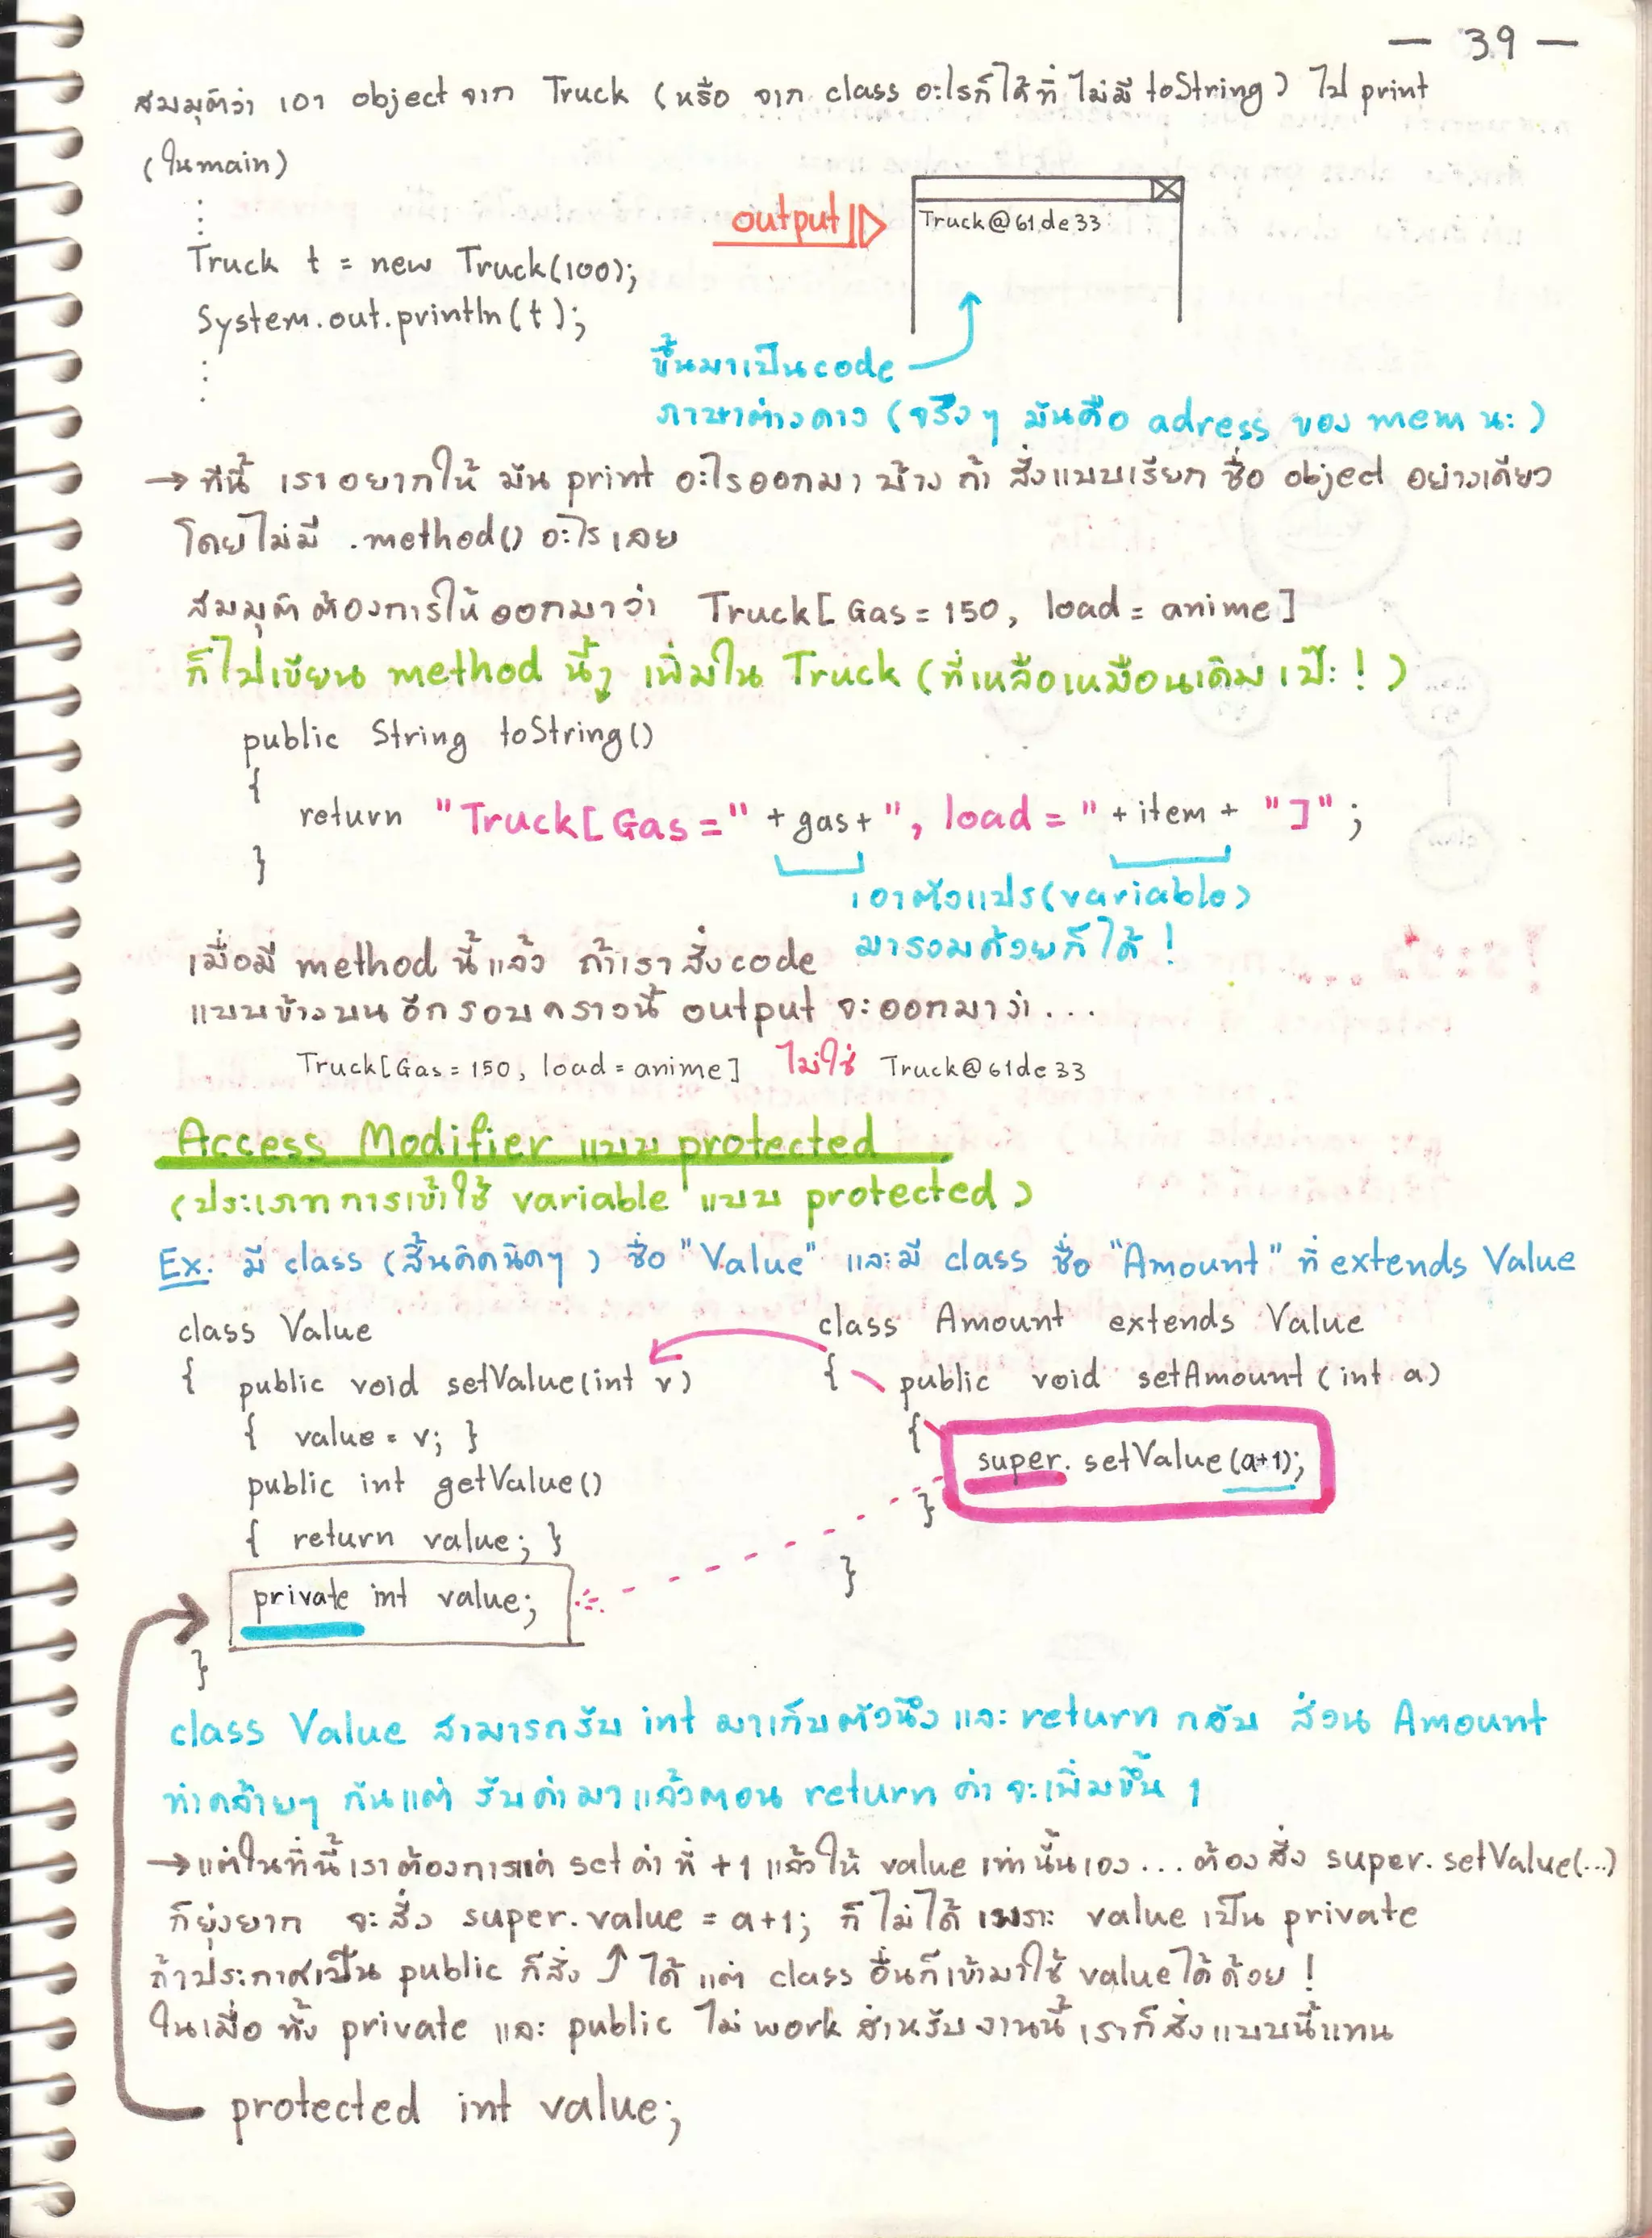 — 39 —
สมมุติว่า เอา object จาก Truck (หรือ จาก class อะไรก็ได้ที่ ไม่มี toString) ไป print
(ในmain)
Truck t = new Truck(100);
System.out.println(t);
output
Truck@61de33
ขึ้นมาเป็นcode
ภาษาต่างดาว (จริงๆ มันคือ adress ของ mem นะ)
→ ทีนี้ เราอยากให้ มัน print อะไรออกมา บ้าง ถ้า สั่งแบบเรียก ชื่อ object อย่างเดียว
โดยไม่มี .method() อะไร เลย
สมมุติ ต้องการให้ ออกมาว่า Truck[Gas=150, load=anime]
ก็ไปเขียน method นี้ๆ เพิ่มใน Truck (ที่เหลือเหมือนเดิมเป๊ะ!)
public String toString()
{
return "Truck[Gas=" +gas+", load=" +item+ "]";
}
เอาตัวแปร(variable)
มารวมด้วยก็ได้ !
เมื่อมี method นี้แล้ว ถ้าเรา สั่งcode
แบบข้างบน อีกรอบคราวนี้ output จะออกมาว่า...
Truck[Gas=150, load=anime] ไม่ใช่ Truck@61de33
Access Modifier แบบ protected
(ประเภทการเข้าใช้ variable แบบ protected)
Ex. มี class (สั้นติดนิดๆ) ชื่อ "Value" และมี class ชื่อ "Amount" ที่ extends Value
class Value
{ public void setValue(int v)
{ value = v; }
public int getValue()
{ return value; }
private int value;
}
class Amount extends Value
{ public void setAmount(int a)
{
super.setValue(a+1);
}
}
class Value สามารถรับ int มาเก็บตัวนึง และ return กลับ ส่วน Amount
ทำคล้ายๆ กันแต่ รับค่ามาแล้วตอน return ค่า จะเพิ่มขึ้น 1
→ แต่ในที่นี้เราต้องการแค่ set ค่า ที่ +1 แล้วให้ value เท่านั้นเอง... ต้อง สั่ง super.setValue(...)
ก็ยุ่งยาก จะสั่ง super.value = a+1; ก็ ไม่ได้ เพราะ value เป็น private
ถ้าประกาศเป็น public ก็สั่ง ↑ ได้ แต่ class อื่นก็เข้ามาใช้ valueได้ด้วย !
ในเมื่อ ทั้ง private และ public ไม่ work สำหรับ งานนี้ เราก็สั่งแบบนี้แทน
protected int value;